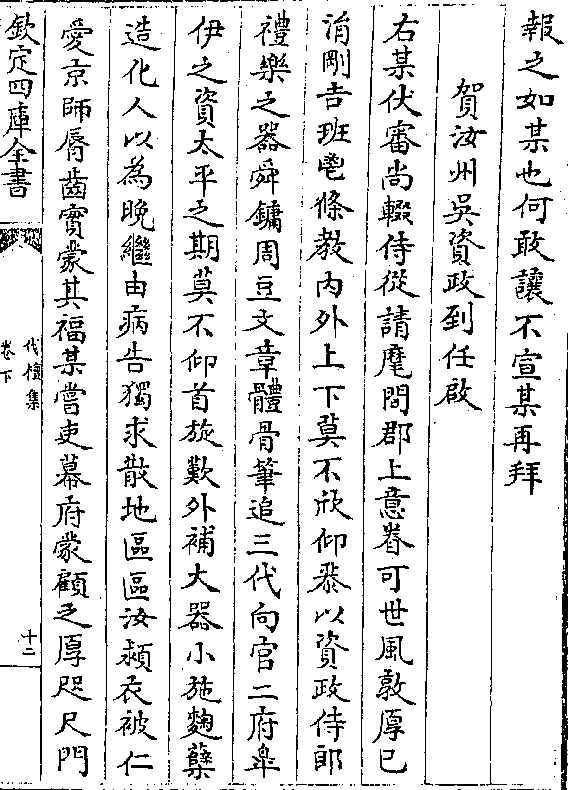 報之如某也何敢讓不宣某再拜
賀汝州吳資政到任啟
右某伏審尚輟侍從請麾問郡上意眷可世風敦厚已
消剛吉班鬯條教内外上下莫不欣仰恭以資政侍郎
禮樂之器舜鏞周豆文章體骨筆追三代向官二府臯
伊之資太平之期莫不仰首旋歎外補大器小施麴蘖
造化人以為晚繼由病告獨求散地區區汝潁衣被仁
愛京師脣齒實蒙其福某嘗吏幕府蒙顧之厚咫尺門
欽定四庫全書
伐檀集
卷下
十二